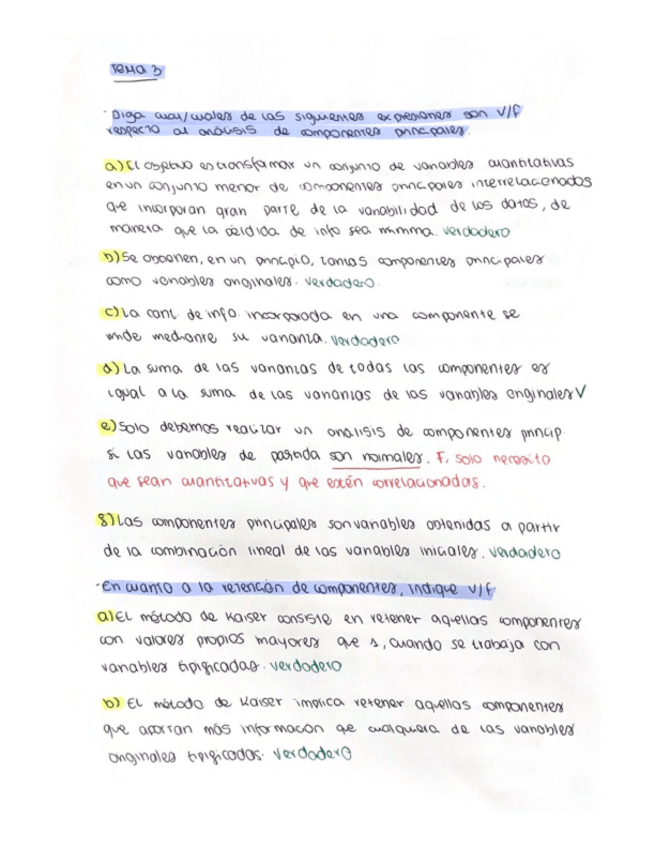 Tema 3
· Diga cual/cuales de las siguientes expresiones son V/F
respecto al análisis de componentes principales.
a) El objetivo es transformar un conjunto de variables cuantitativas
en un conjunto menor de componentes principales interrelacionados
que incorporan gran parte de la variabilidad de los datos, de
manera que la pérdida de info sea mínima. verdadero
b) Se obtienen, en un principio, tantas componentes principales
como variables originales. verdadero.
c) La cant. de info. incorporada en una componente se
mide mediante su varianza. verdadero
d) La suma de las varianzas de todas las componentes es
igual a la suma de las varianzas de las variables originales V
e) Solo debemos realizar un análisis de componentes princip.
si las variables de partida son normales. F, solo necesito
que sean cuantitativas y que estén correlacionadas.
g) Las componentes principales son variables obtenidas a partir
de la combinación lineal de las variables iniciales. verdadero
· En cuanto a la retención de componentes, indique V/F.
a) El método de Kaiser consiste en retener aquellas componentes
con valores propios mayores que 1, cuando se trabaja con
variables tipificadas. verdadero
b) El método de Kaiser implica retener aquellas componentes
que aportan más información que cualquiera de las variables
originales tipificadas. verdadero